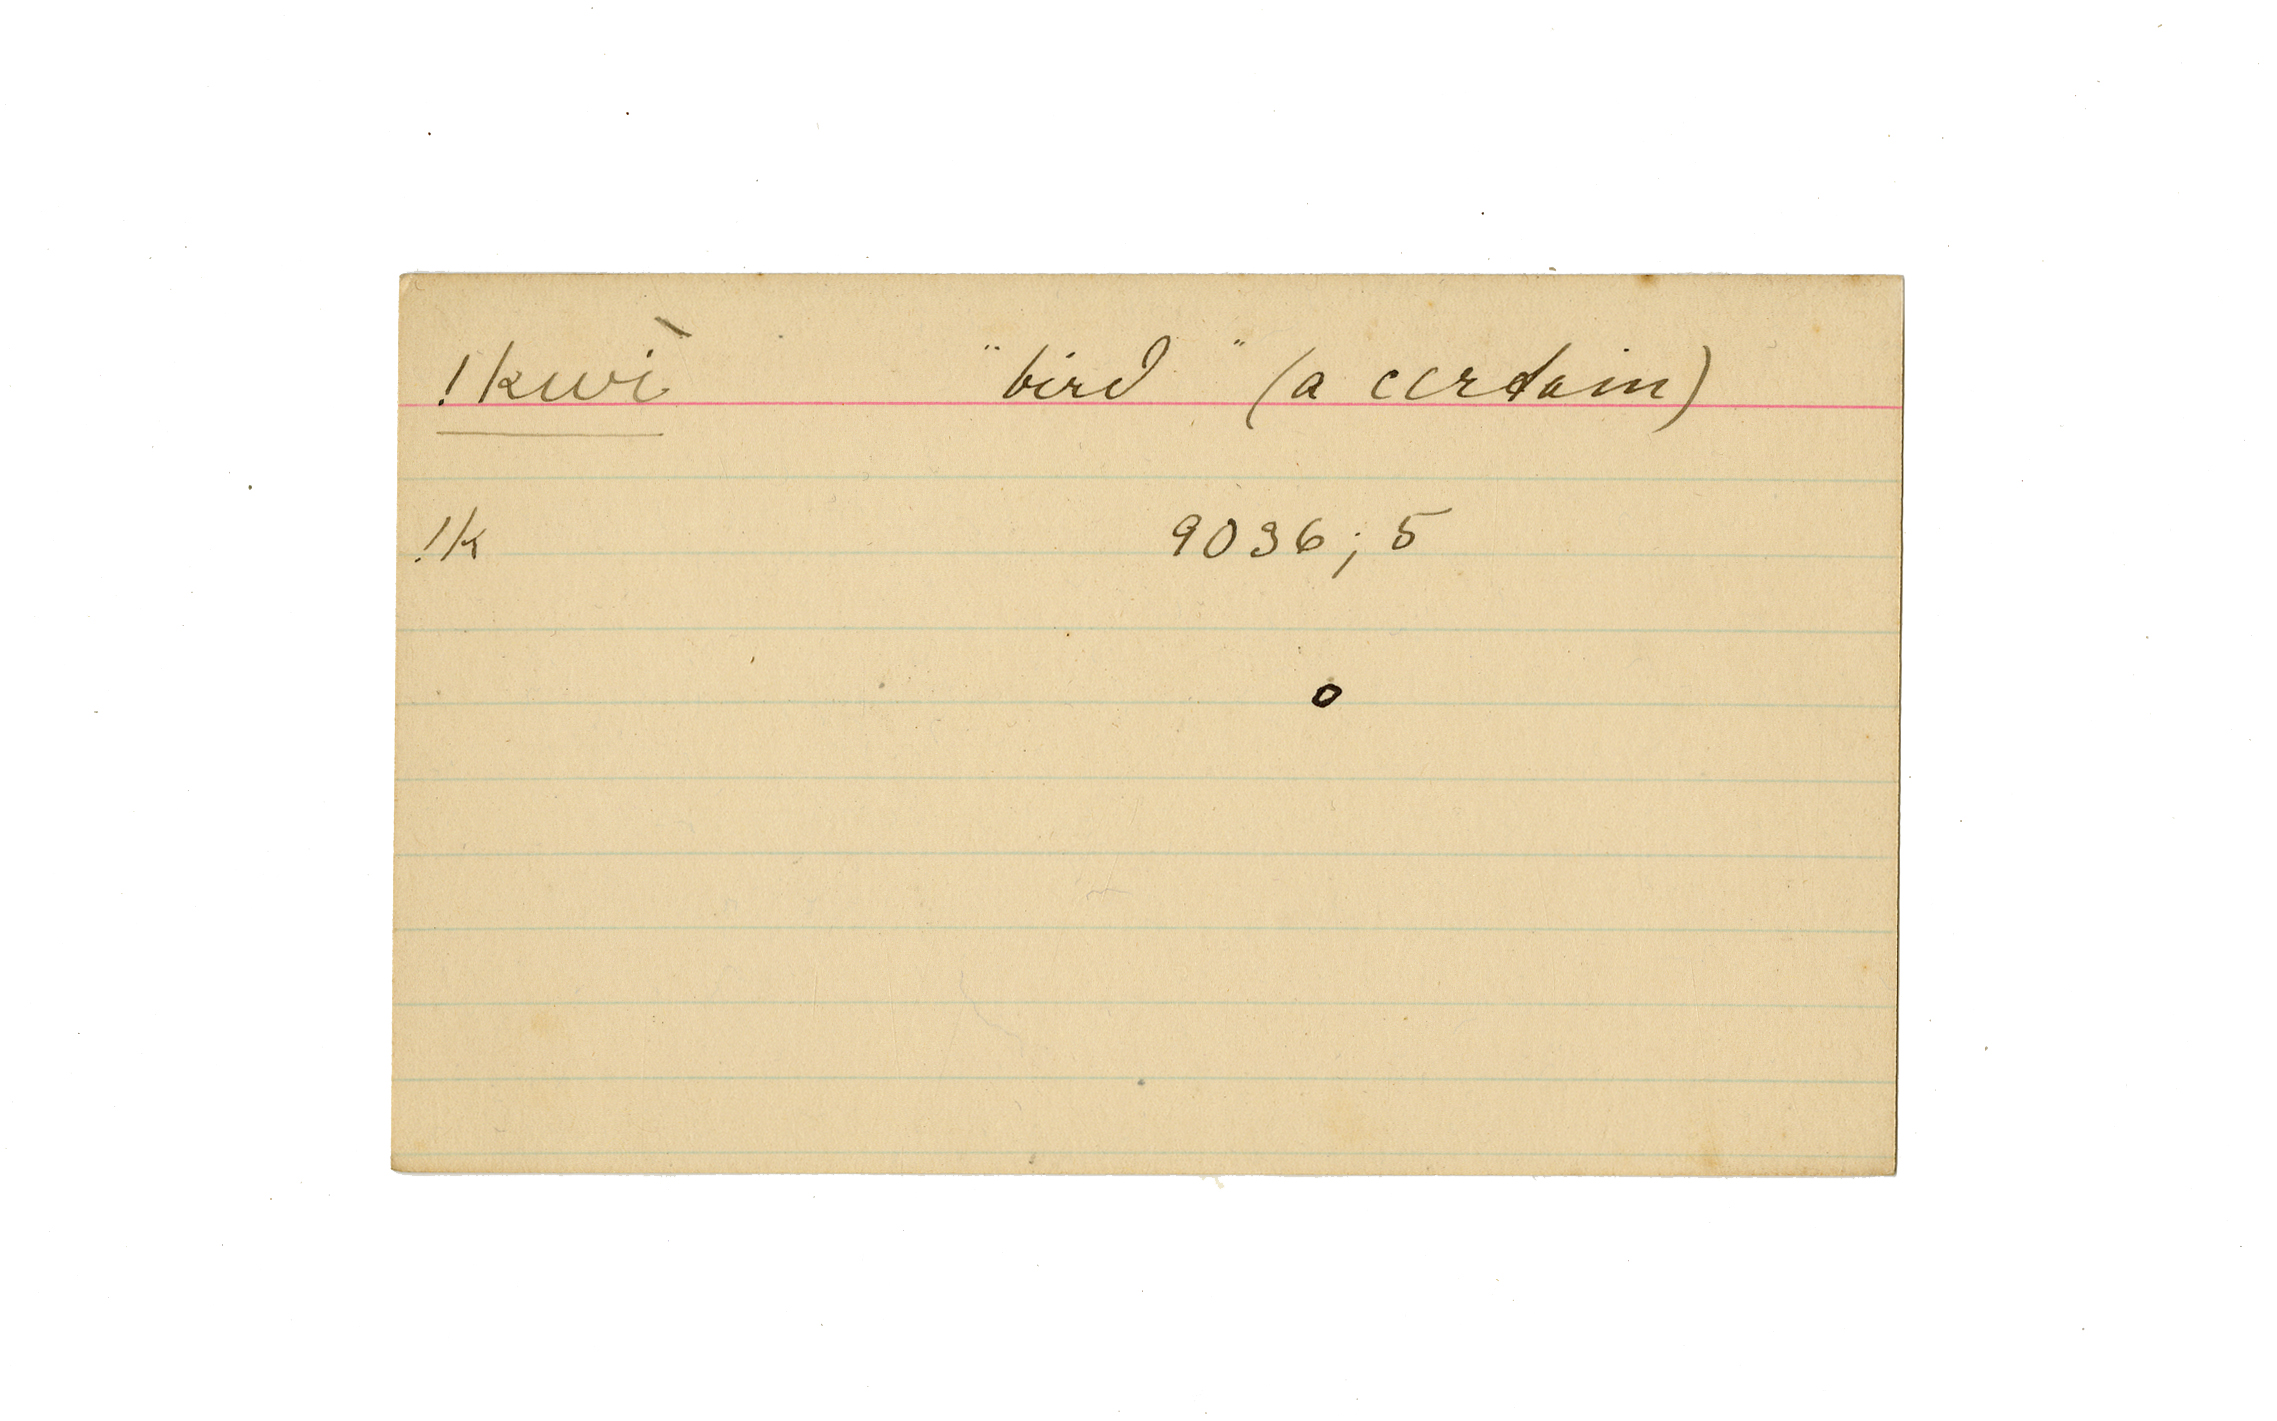 !kwì "bird" (a certain)
!k 9036; 5
o